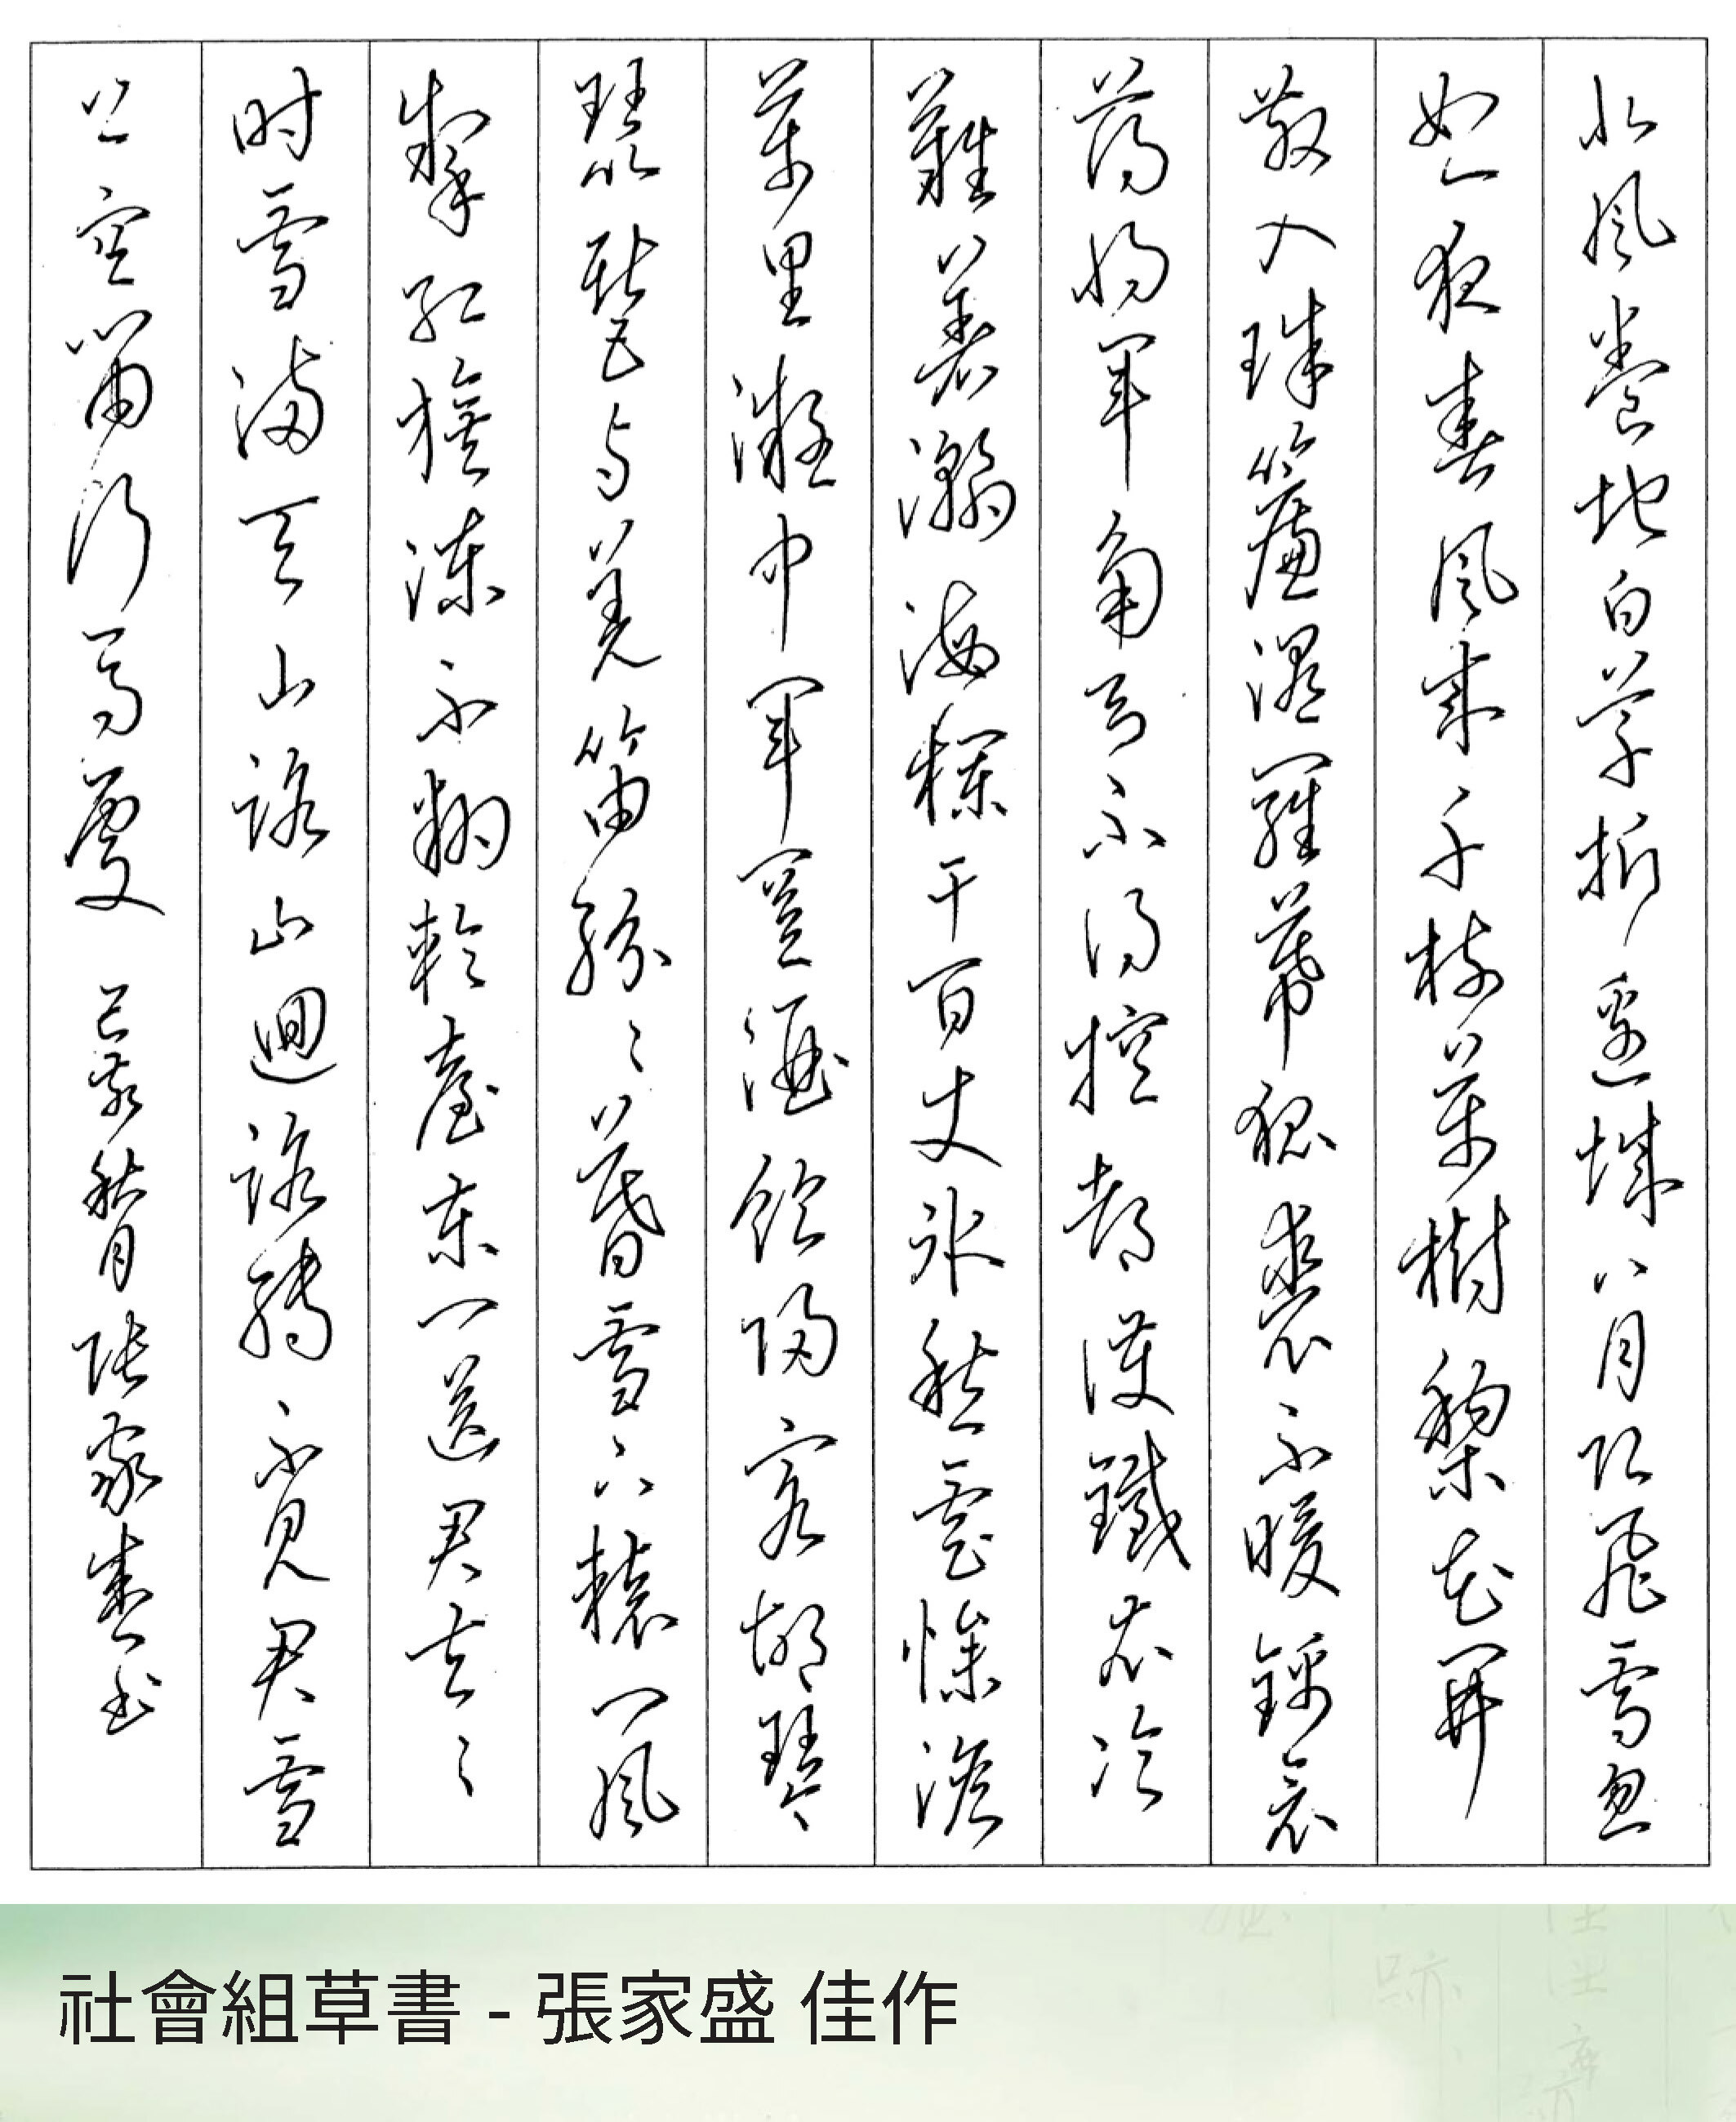 北風卷地白草折邊城八月即飛雪忽
如一夜春風來千枝萬樹梨花開
散入珠簾濕羅幕狐裘不暖錦衾
薄將軍角弓不得控都護鐵衣冷
難著瀚海欄干百丈冰愁雲慘澹
萬里凝中軍置酒飲歸客胡琴
琵琶與羌笛紛々暮雪下轅門風
掣紅旗凍不翻輪臺東門送君去々
时雪滿天山路山迴路轉不見君雪
上空留行馬處 己亥秋月張家盛書
社會組草書 - 張家盛 佳作